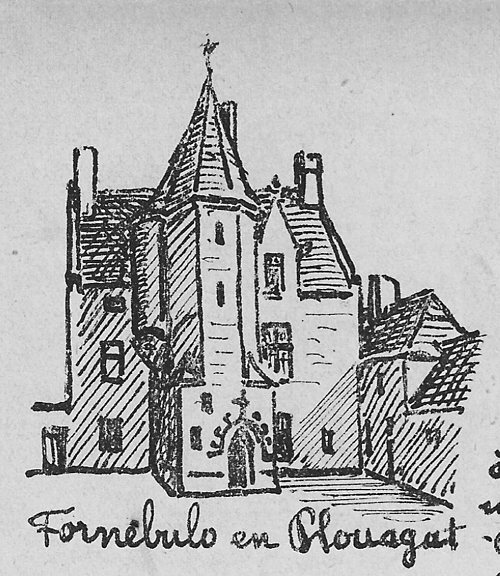 Fornébulo en Plouagat